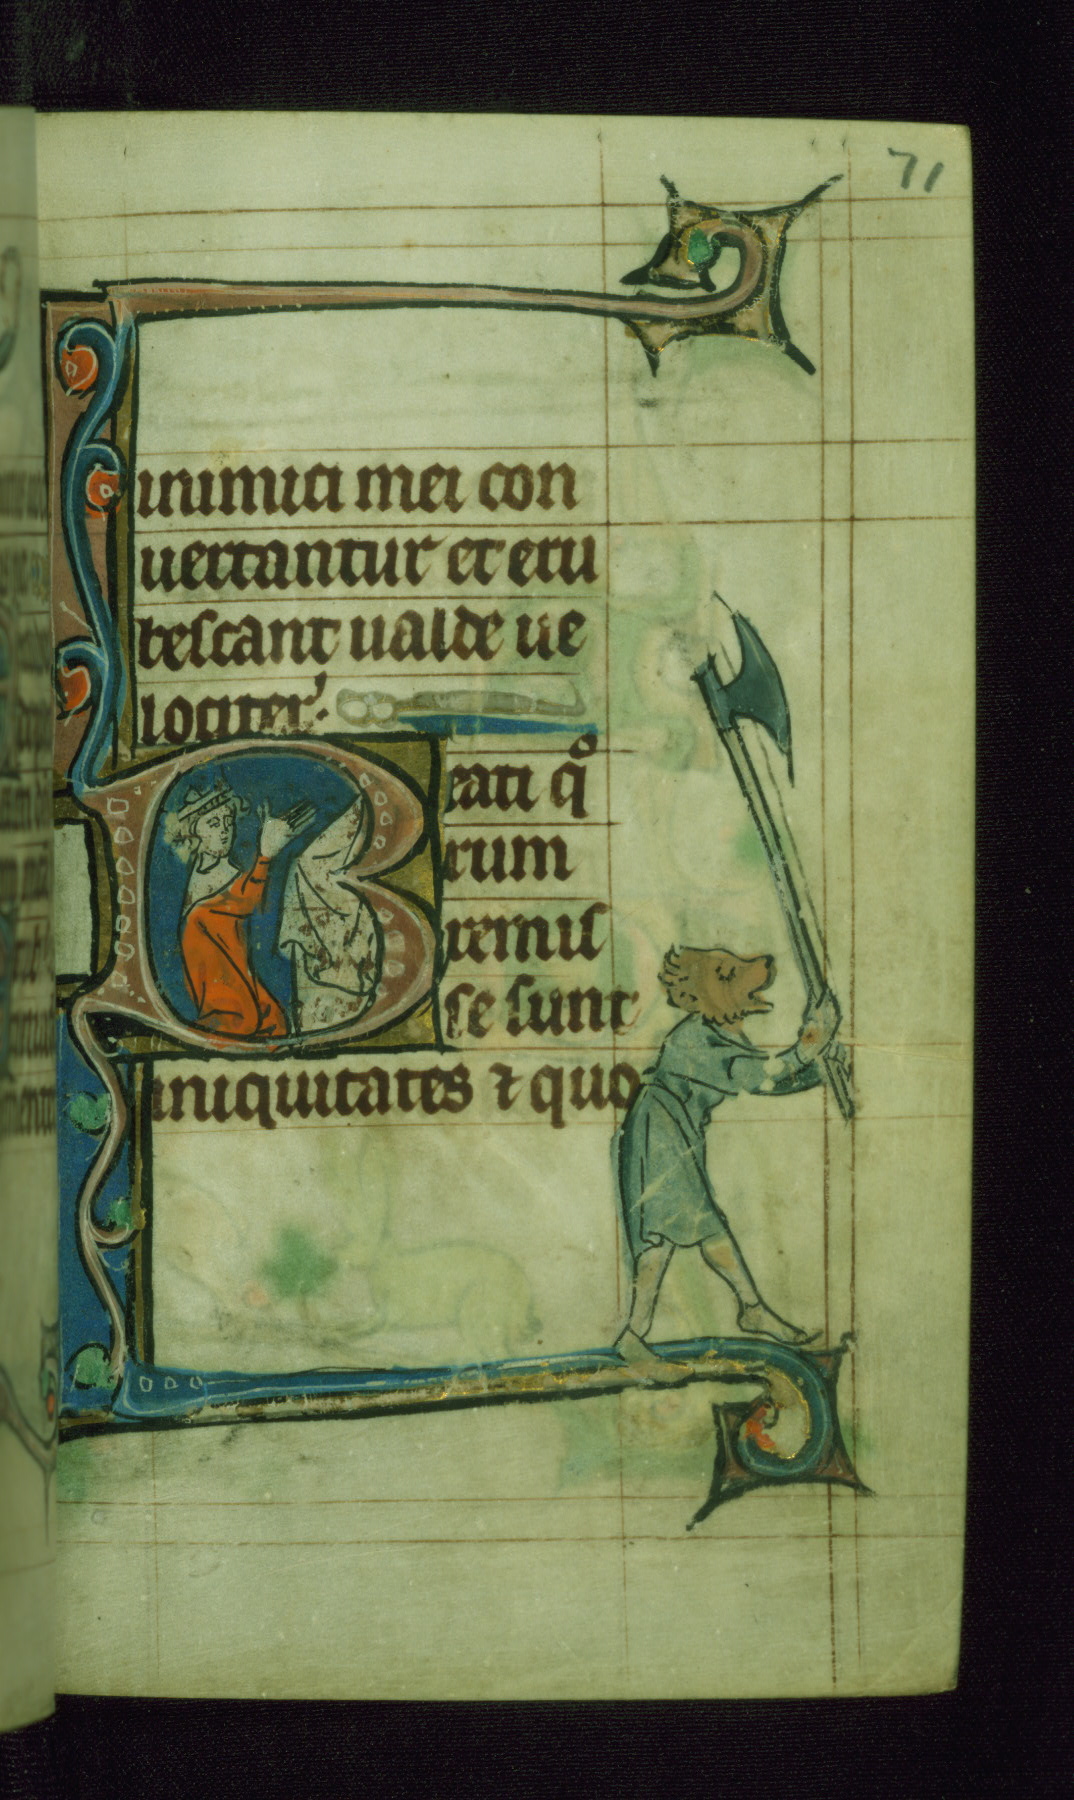 71
inimici mei con
uertantur et eru
bescant ualde ue
lociter.
Beati q̊
rum
remis
se sunt
iniquitates ⁊ quo